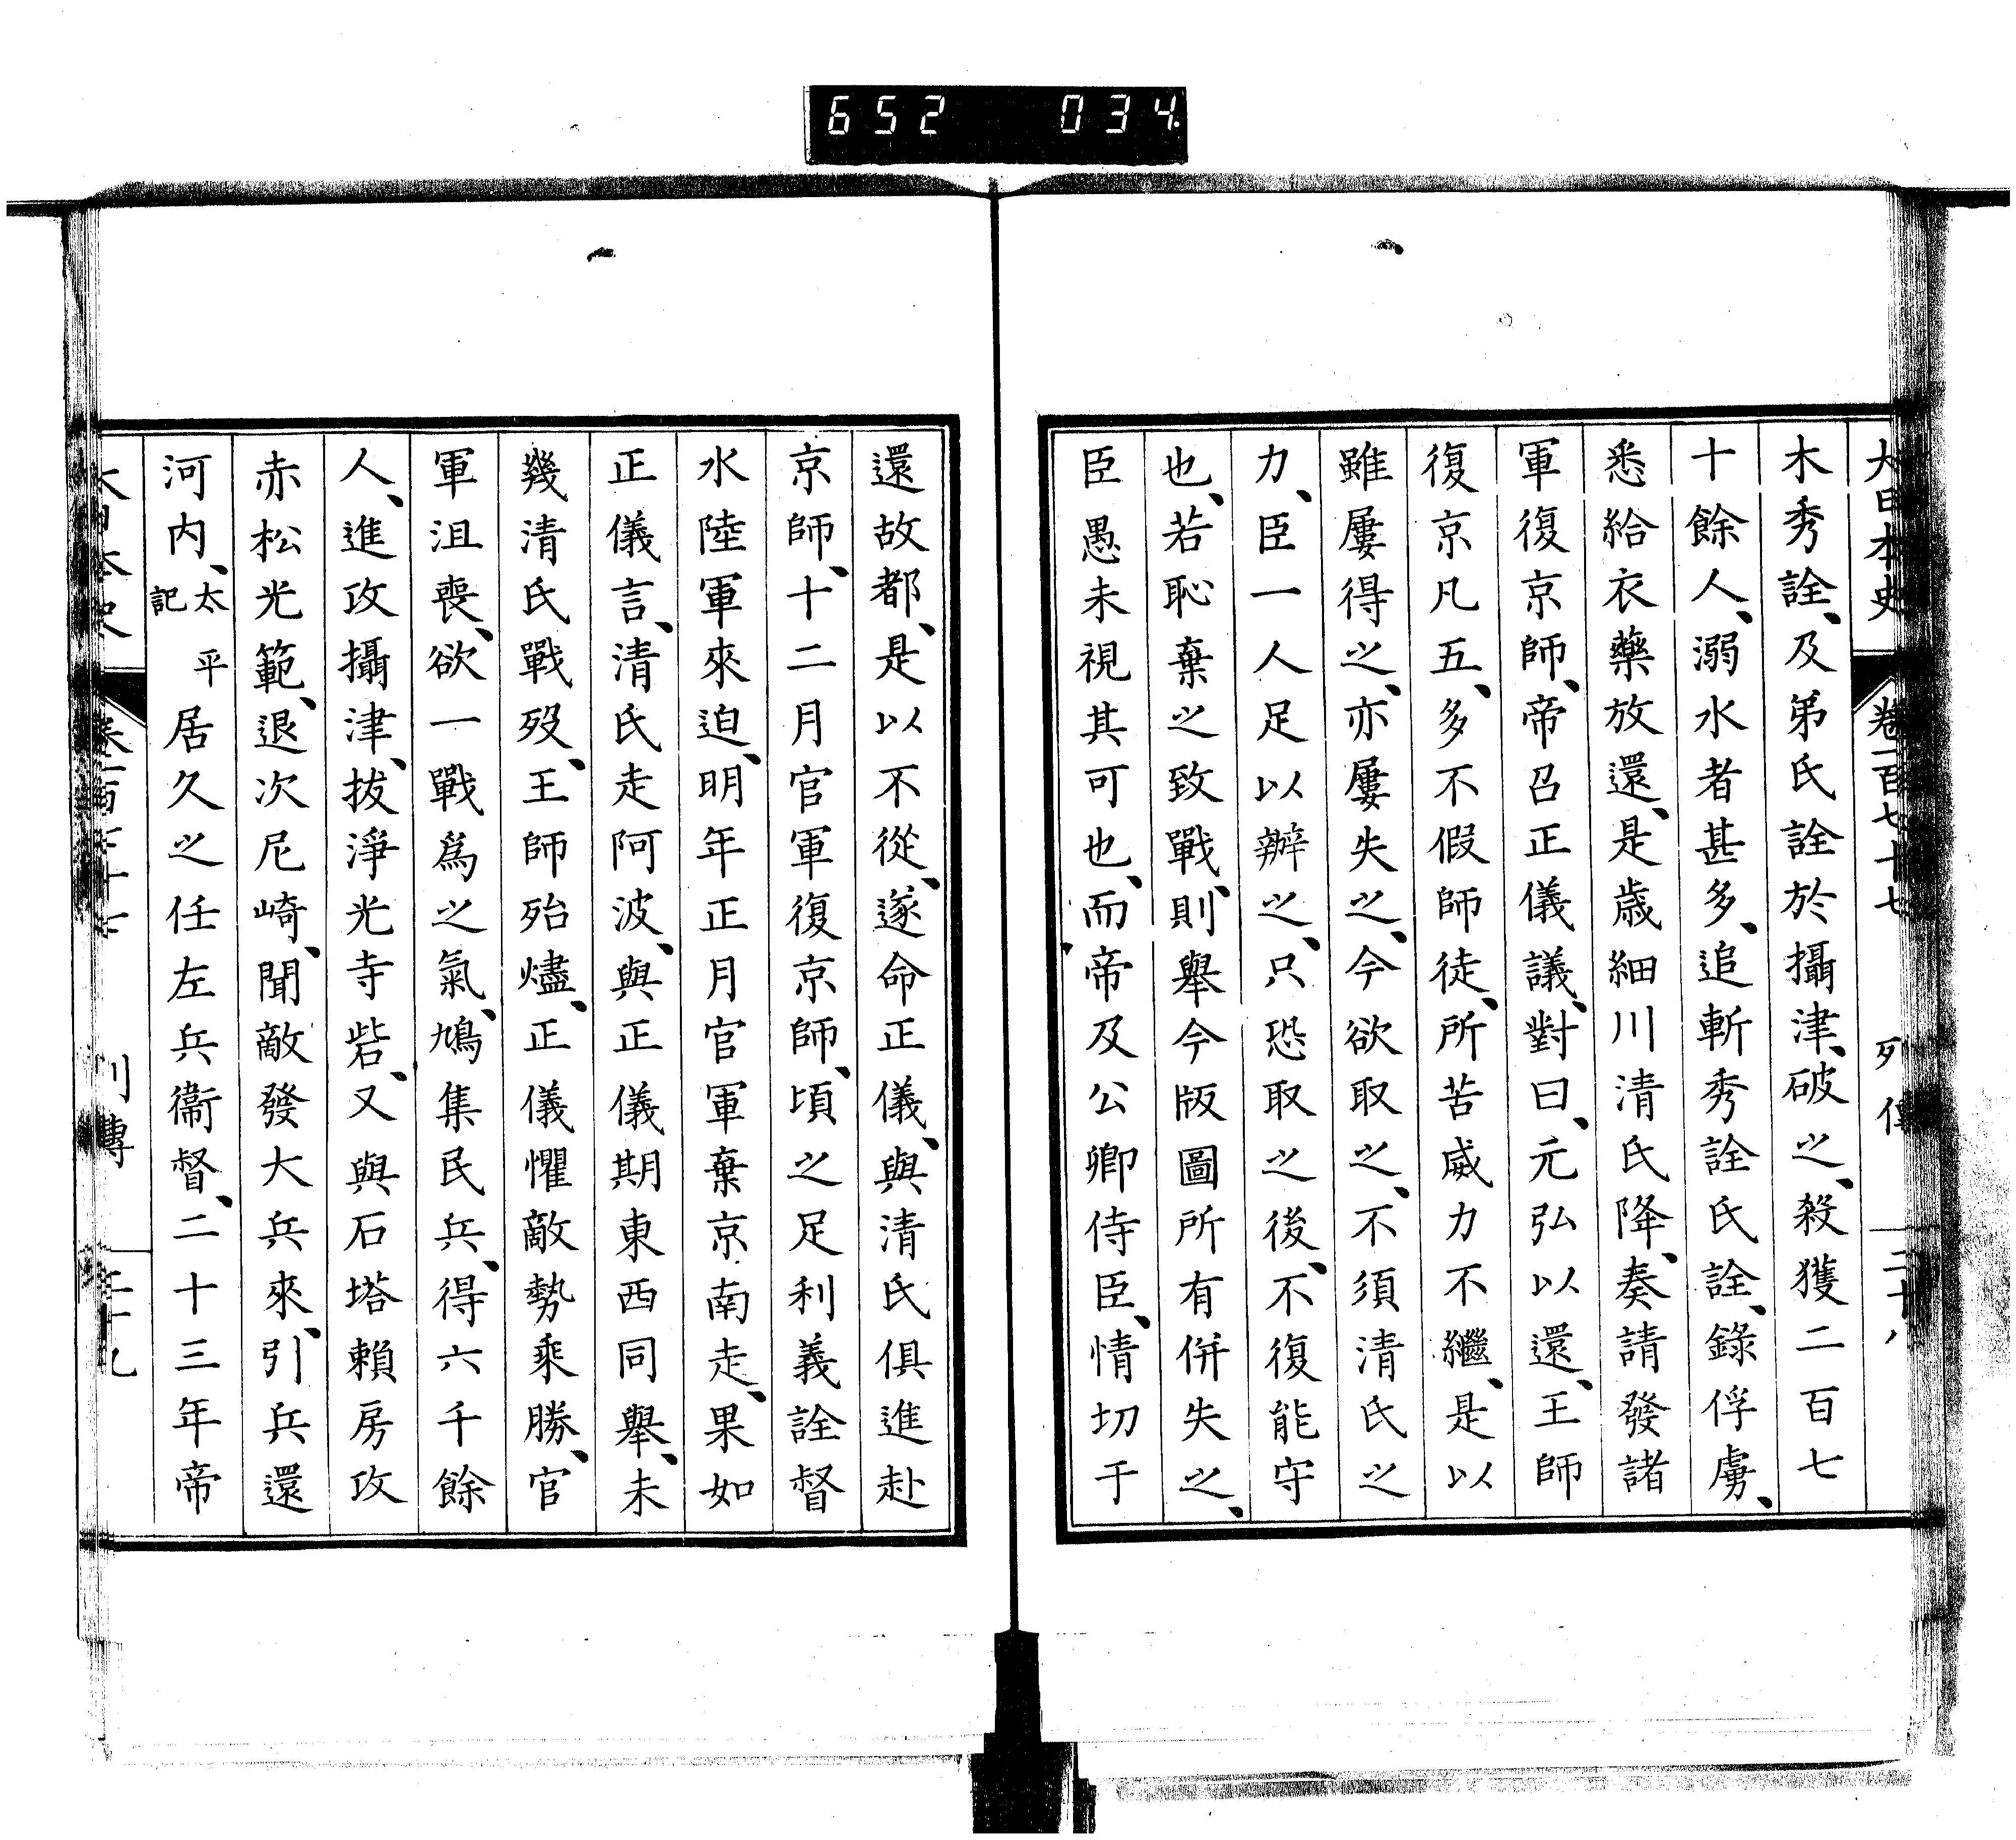 652 034
大日本史 卷一百七十七 列傳 二十八
木秀詮、及弟氏詮於攝津、破之、殺獲二百七
十餘人、溺水者甚多、追斬秀詮氏詮、錄俘虜、
悉給衣藥放還、是歲細川清氏降、奏請發諸
軍復京師、帝召正儀議、對曰、元弘以還、王師
復京凡五、多不假師徒、所苦威力不繼、是以
雖屢得之、亦屢失之、今欲取之、不須清氏之
力、臣一人足以辦之、只恐取之後、不復能守
也、若恥棄之致戰、則舉今版圖所有併失之、
臣愚未視其可也、而帝及公卿侍臣、情切于
還故都、是以不從、遂命正儀、與清氏俱進赴
京師、十二月官軍復京師、頃之足利義詮督
水陸軍來迫、明年正月官軍棄京南走、果如
正儀言、清氏走阿波、與正儀期東西同舉、未
幾清氏戰歿、王師殆燼、正儀懼敵勢乘勝、官
軍沮喪、欲一戰爲之氣、鳩集民兵、得六千餘
人、進攻攝津、拔淨光寺砦、又與石塔賴房攻
赤松光範、退次尼崎、聞敵發大兵來、引兵還
河內、太平記居久之任左兵衞督、二十三年帝
大日本史 卷一百七十七 列傳 二十九